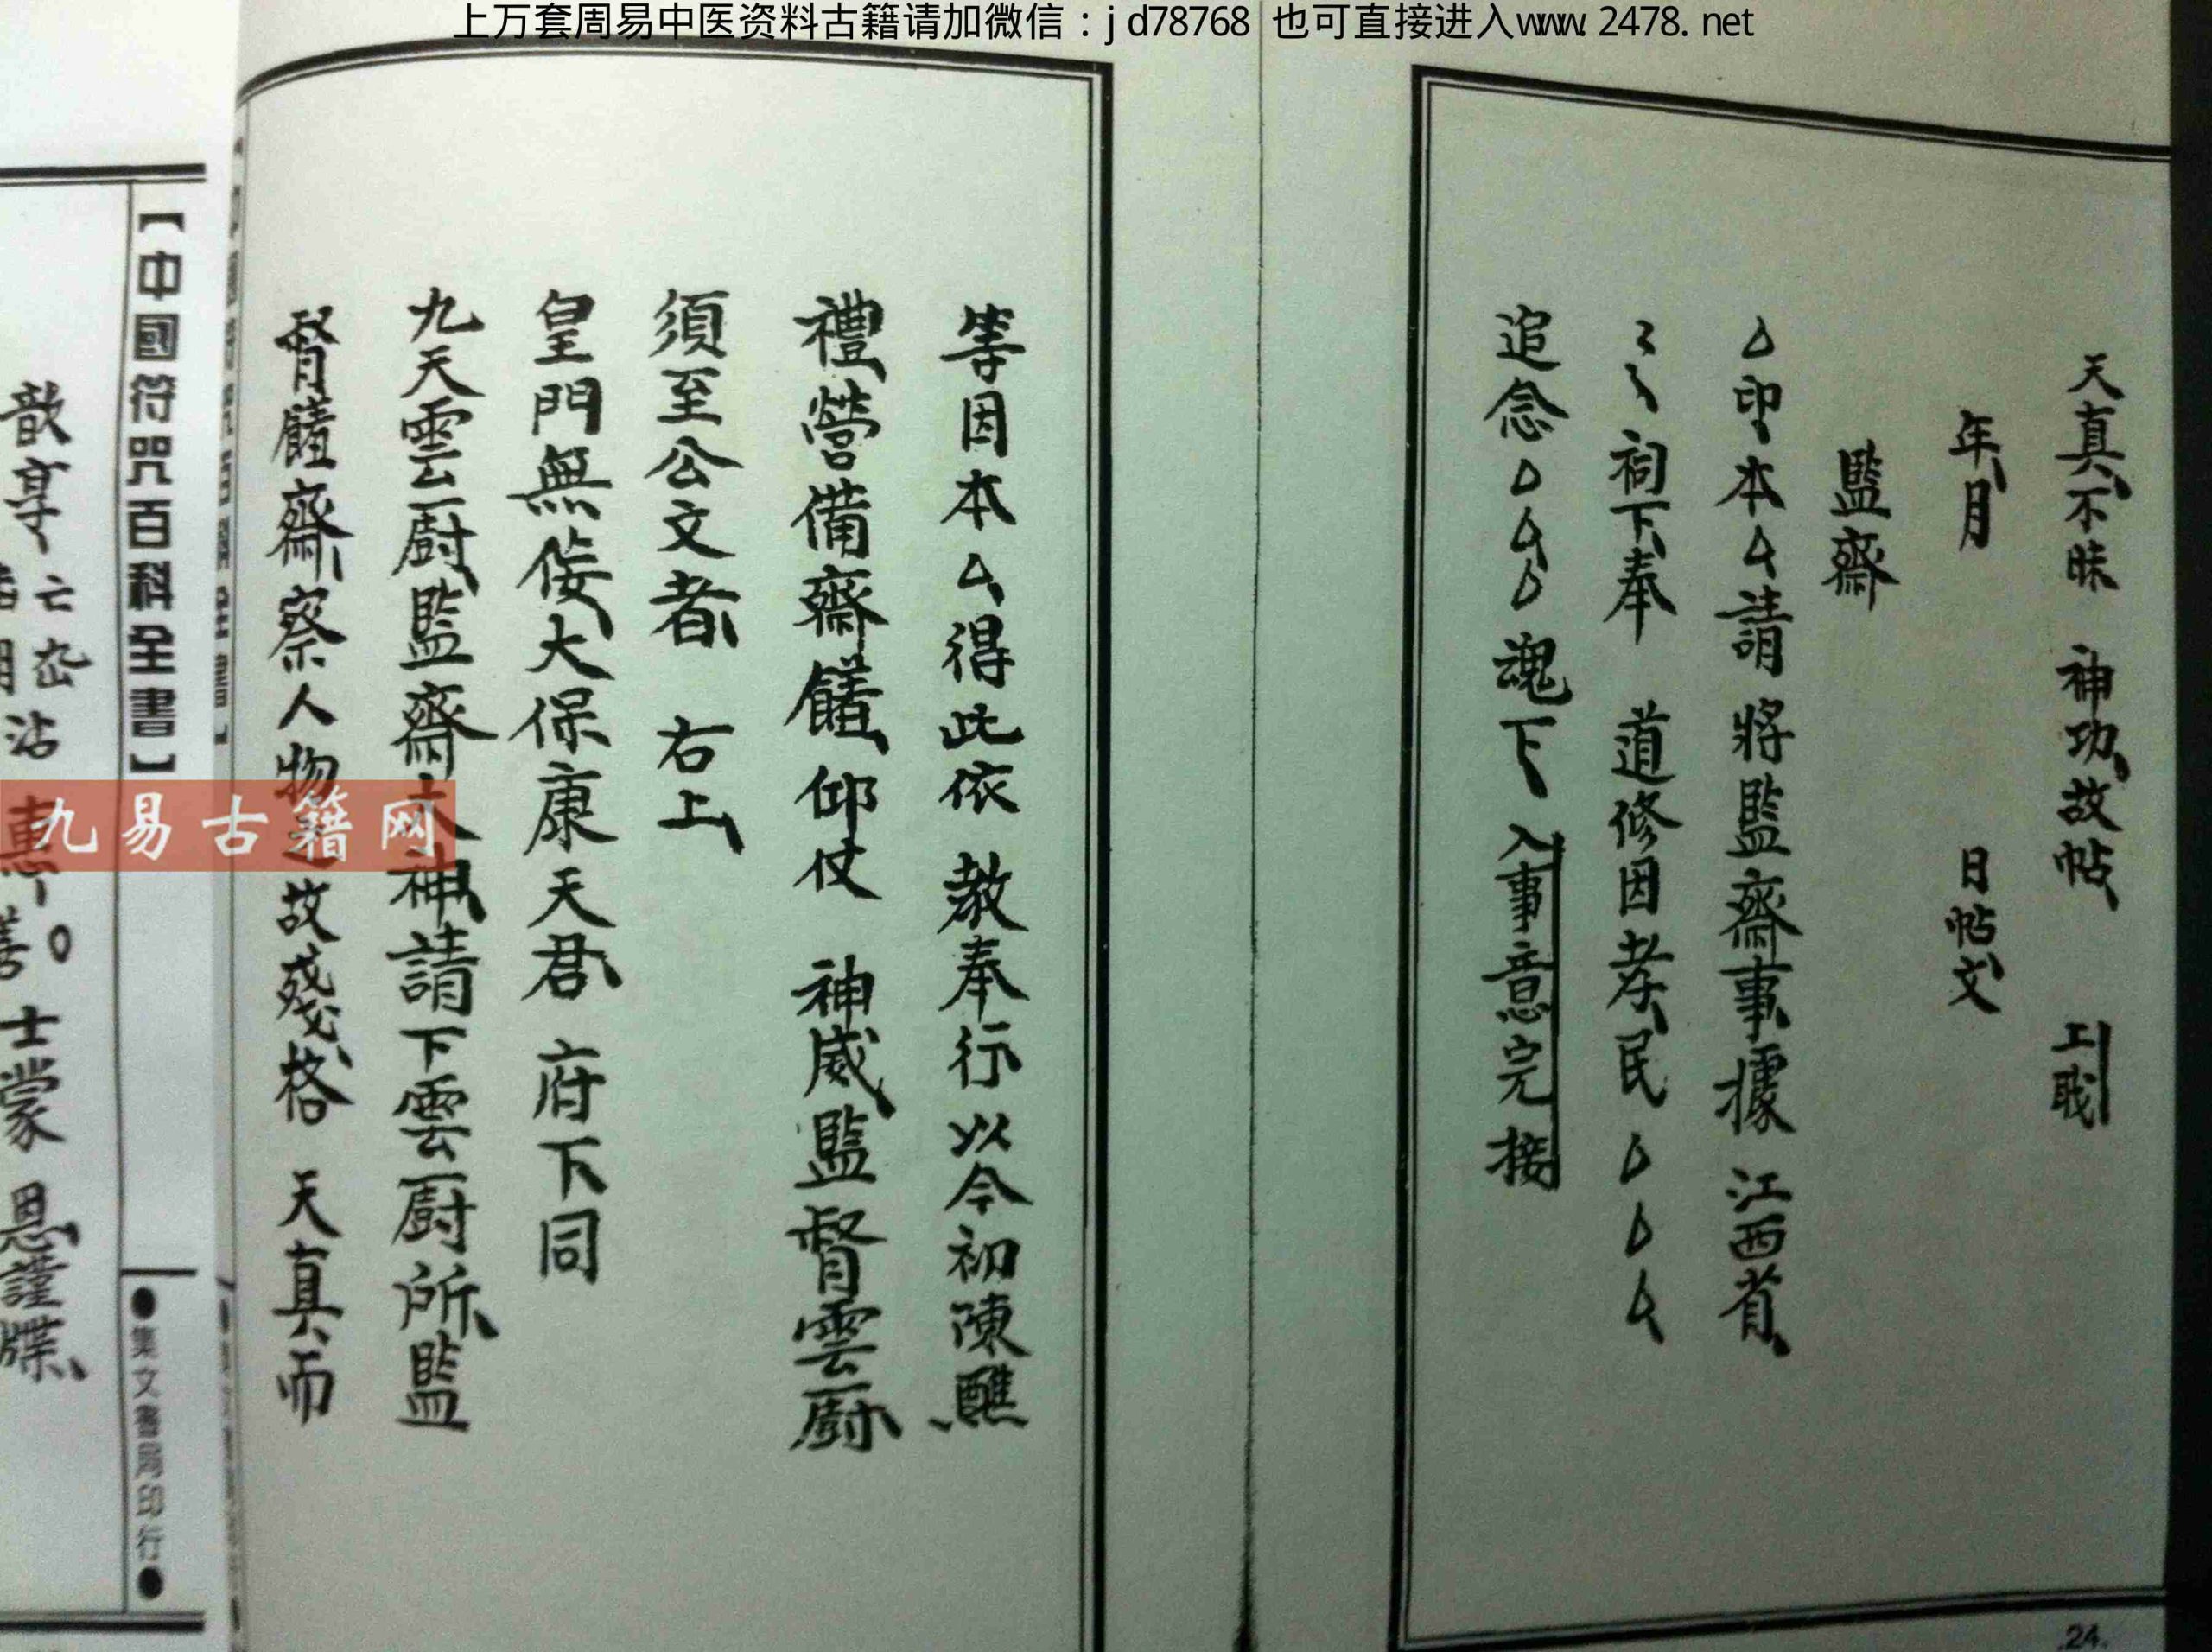 上万套周易中医资料古籍请加微信：jd78768 也可直接进入www.2478.net
天真不昧 神功故帖 上戝
年月 日帖文
監齋
厶印本厶請將監齋事據 江西省
祠下奉 道修因孝民厶厶厶
追念厶厶厶魂下 入事意完接
等因本厶得此依 教奉行以今初陳醮
禮營備齋饐仰仗 神威監督雲厨
須至公文者 右上
皇門無佞大保康天君 府下同
九天雲厨監齋大神請下雲厨所監
督饐齋察人物 故殘格 天真而
九易古籍网
【中國符咒百科全書】
●集文書局印行●
歆享亡
沾 惠
士蒙 恩謹牒
24